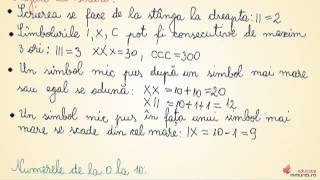 • Scrierea se face de la stânga la dreapta: II = 2
• Simbolurile I, X, C pot fi consecutive de maxim
3 ori: III = 3 XXX = 30, CCC = 300
• Un simbol mic pus după un simbol mai mare
sau egal se adună: XX = 10 + 10 = 20
XII = 10 + 1 + 1 = 12
• Un simbol mic pus în fața unui simbol mai
mare se scade din cel mare: IX = 10 - 1 = 9
Numerele de la 0 la 10: